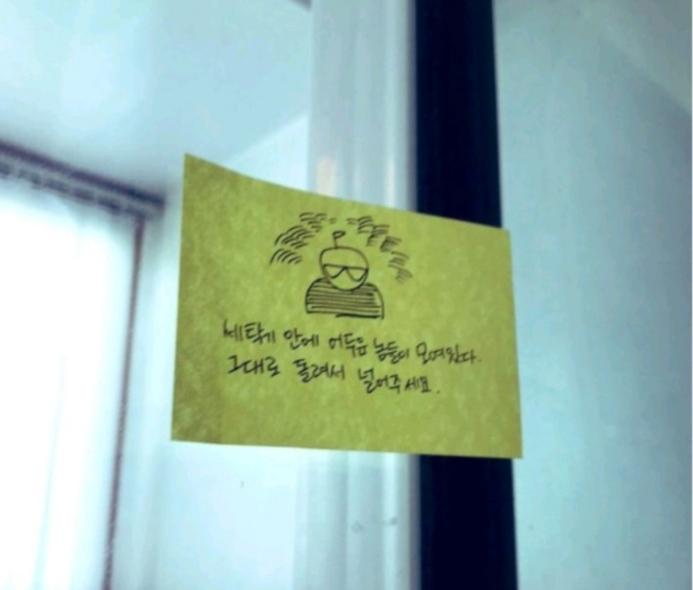 세탁기 안에 어두운 놈들이 모여있다.
그대로 돌려서 널어주세요.